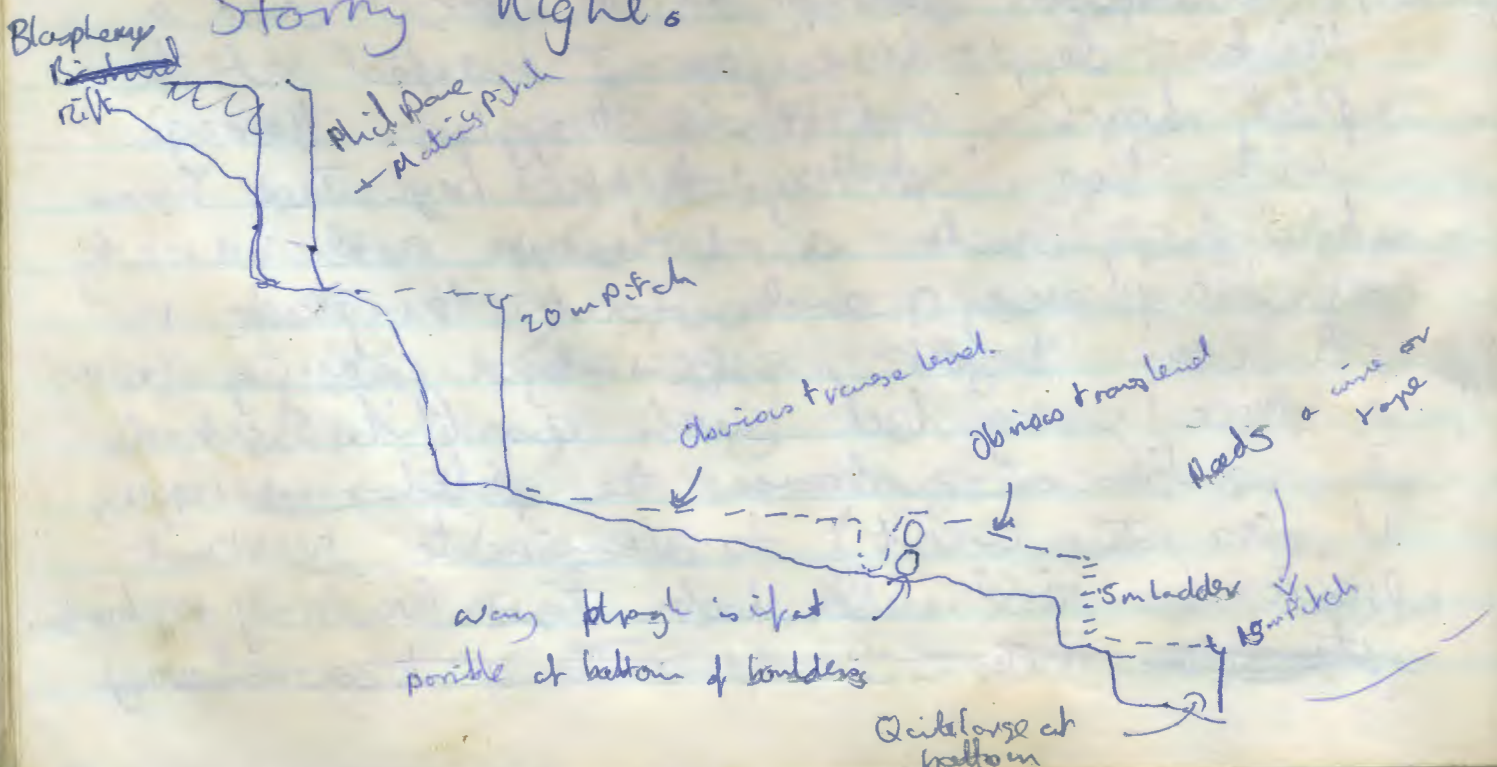 Stormy night.
Blasphemy
rift
Mating pitch
20m Pitch
Obvious traverse level.
Obvious travs level
Needs a wire or
rope
5m ladder
Pitch
way is if at
possible at bottom of boulders
Quite large at
bottom